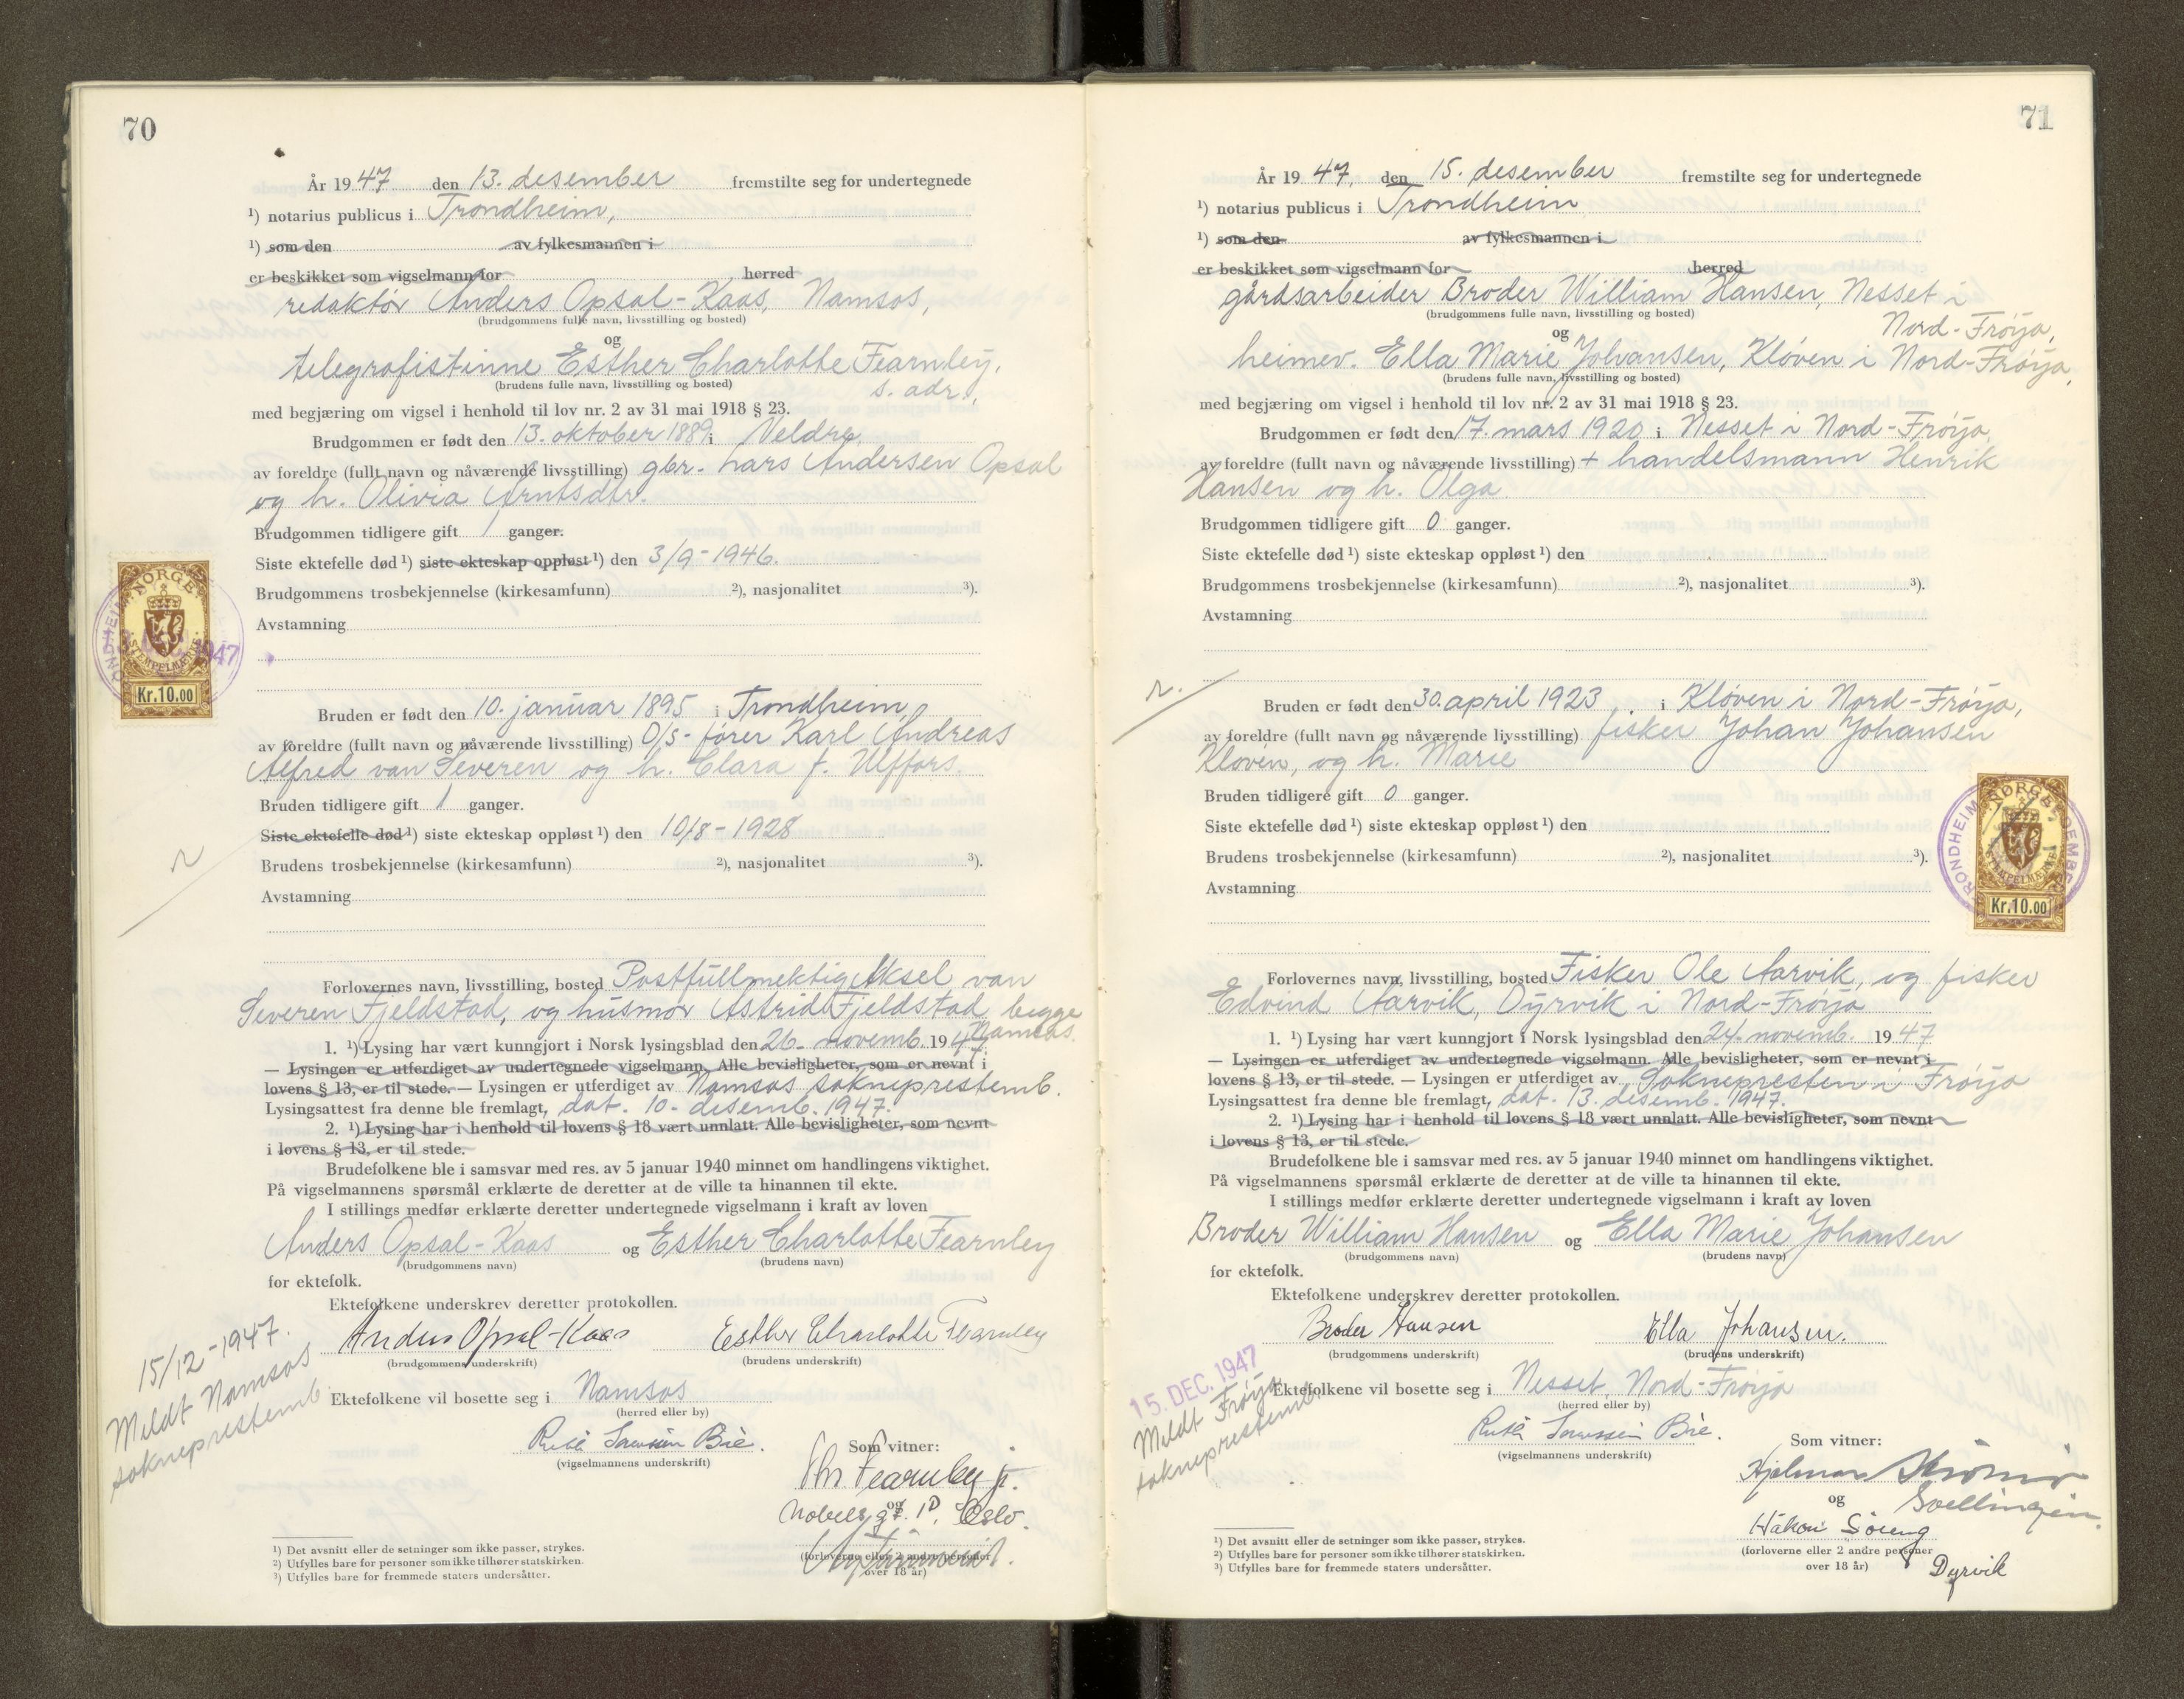 70
År 1947 den 13. desember fremstilte seg for undertegnede
¹) notarius publicus i Trondheim,
¹) som den av fylkesmannen i
er beskikket som vigselmann for herred
redaktør Anders Opsal-Kaas, Namsos,
(brudgommens fulle navn, livsstilling og bosted)
og
telegrafistinne Esther Charlotte Fearnley,
(brudens fulle navn, livsstilling og bosted) s. adr.,
med begjæring om vigsel i henhold til lov nr. 2 av 31 mai 1918 § 23.
Brudgommen er født den 13. oktober 1889 i Veldre,
av foreldre (fullt navn og nåværende livsstilling) gbr. Lars Andersen Opsal
og h. Olivia Arntsdtr.
Brudgommen tidligere gift 1 ganger.
Siste ektefelle død ¹) siste ekteskap oppløst ¹) den 3/9-1946.
Brudgommens trosbekjennelse (kirkesamfunn) ²), nasjonalitet ³).
Avstamning
NORGE
STEMPELMERKE
Kr.10.00
1947
Bruden er født den 10. januar 1895 i Trondheim,
av foreldre (fullt navn og nåværende livsstilling) O/s-fører Karl Andreas
Alfred van Severen og h. Clara f. Ulffors.
Bruden tidligere gift 1 ganger.
Siste ektefelle død ¹) siste ekteskap oppløst ¹) den 10/8-1928
Brudens trosbekjennelse (kirkesamfunn) ²), nasjonalitet ³).
Avstamning
Forlovernes navn, livsstilling, bosted Postfullmektig Aksel van
Severen Fjeldstad, og husmor Astrid Fjeldstad, begge
Namsos.
1. ¹) Lysing har vært kunngjort i Norsk lysingsblad den 26. novemb. 1947.
— Lysingen er utferdiget av undertegnede vigselmann. Alle bevisligheter, som er nevnt i
lovens § 13, er til stede. — Lysingen er utferdiget av Namsos sokneprestemb.
Lysingsattest fra denne ble fremlagt, dat. 10. desemb. 1947.
2. ¹) Lysing har i henhold til lovens § 18 vært unnlatt. Alle bevisligheter, som nevnt
i lovens § 13, er til stede.
Brudefolkene ble i samsvar med res. av 5 januar 1940 minnet om handlingens viktighet.
På vigselmannens spørsmål erklærte de deretter at de ville ta hinannen til ekte.
I stillings medfør erklærte deretter undertegnede vigselmann i kraft av loven
Anders Opsal-Kaas og Esther Charlotte Fearnley
(brudgommens navn) (brudens navn)
for ektefolk.
Ektefolkene underskrev deretter protokollen.
Anders Opsal-Kaas Esther Charlotte Fearnley
(brudgommens underskrift) (brudens underskrift)
15/12-1947.
Meldt Namsos
sokneprestemb.
Ektefolkene vil bosette seg i Namsos
(herred eller by)
Bie.
(vigselmannens underskrift)
Som vitner:
Thr. Fearnley jr.
og
Nobelsgt. 1D, Oslo.
(forloverne eller 2 andre personer
over 18 år)
¹) Det avsnitt eller de setninger som ikke passer, strykes.
²) Utfylles bare for personer som ikke tilhører statskirken.
³) Utfylles bare for fremmede staters undersåtter.
71
År 1947, den 15. desember fremstilte seg for undertegnede
¹) notarius publicus i Trondheim
¹) som den av fylkesmannen i
er beskikket som vigselmann for herred
gårdsarbeider Broder William Hansen, Nesset i
(brudgommens fulle navn, livsstilling og bosted)
og Nord-Frøya,
heimev. Ella Marie Johansen, Kløven i Nord-Frøya,
(brudens fulle navn, livsstilling og bosted)
med begjæring om vigsel i henhold til lov nr. 2 av 31 mai 1918 § 23.
Brudgommen er født den 17. mars 1920 i Nesset i Nord-Frøya,
av foreldre (fullt navn og nåværende livsstilling) + handelsmann Henrik
Hansen og h. Olga
Brudgommen tidligere gift 0 ganger.
Siste ektefelle død ¹) siste ekteskap oppløst ¹) den
Brudgommens trosbekjennelse (kirkesamfunn) ²), nasjonalitet ³).
Avstamning
Bruden er født den 30. april 1923 i Kløven i Nord-Frøya,
av foreldre (fullt navn og nåværende livsstilling) fisker Johan Johansen
Kløven, og h. Marie
Bruden tidligere gift 0 ganger.
Siste ektefelle død ¹) siste ekteskap oppløst ¹) den
Brudens trosbekjennelse (kirkesamfunn) ²), nasjonalitet ³).
Avstamning
NORGE
STEMPELMERKE
Kr.10.00
TRONDHEIM
Forlovernes navn, livsstilling, bosted Fisker Ole Aarvik, og fisker
Edvind Aarvik, Dyrvik i Nord-Frøya
1. ¹) Lysing har vært kunngjort i Norsk lysingsblad den 24. novemb. 1947
— Lysingen er utferdiget av undertegnede vigselmann. Alle bevisligheter, som er nevnt i
lovens § 13, er til stede. — Lysingen er utferdiget av Soknepresten i Frøya
Lysingsattest fra denne ble fremlagt, dat. 13. desemb. 1947.
2. ¹) Lysing har i henhold til lovens § 18 vært unnlatt. Alle bevisligheter, som nevnt
i lovens § 13, er til stede.
Brudefolkene ble i samsvar med res. av 5 januar 1940 minnet om handlingens viktighet.
På vigselmannens spørsmål erklærte de deretter at de ville ta hinannen til ekte.
I stillings medfør erklærte deretter undertegnede vigselmann i kraft av loven
Broder William Hansen og Ella Marie Johansen
(brudgommens navn) (brudens navn)
for ektefolk.
Ektefolkene underskrev deretter protokollen.
Broder Hansen Ella Johansen.
(brudgommens underskrift) (brudens underskrift)
15. DEC. 1947
Meldt Frøya
sokneprestemb.
Ektefolkene vil bosette seg i Nesset, Nord-Frøya
(herred eller by)
Bie.
(vigselmannens underskrift)
Som vitner:
Hjalmar
og
Håkon Søreng
(forloverne eller 2 andre personer
over 18 år) Dyrvik
¹) Det avsnitt eller de setninger som ikke passer, strykes.
²) Utfylles bare for personer som ikke tilhører statskirken.
³) Utfylles bare for fremmede staters undersåtter.